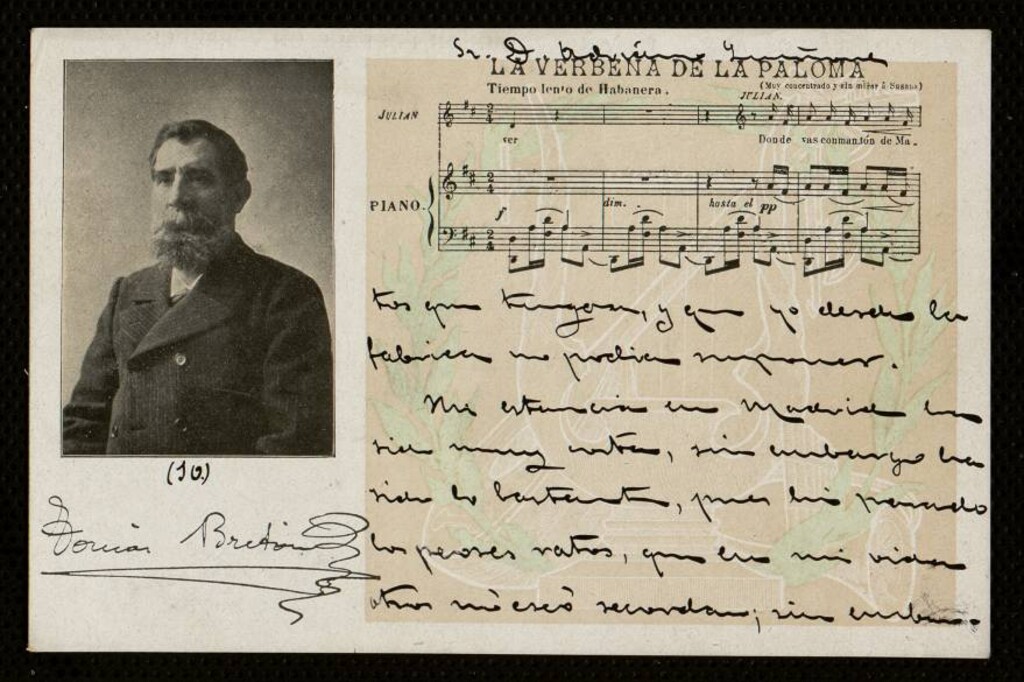 Sr. D. Adrián
LA VERBENA DE LA PALOMA
Tiempo lento de Habanera.
(Muy concentrado y sin mirar á Susana)
JULIAN.
JULIAN
ver
Donde vas con mantón de Ma.
PIANO.
f
dim.
hasta el pp
tos que tengan, y que yo desde la
fabrica no podia suponer.
Mi estancia en Madrid ha
sido muy corta, sin embargo ha
sido lo bastante, pues he pasado
los peores ratos, que en mi vida
otros ni creo recordar; sin embar-
(10)
Tomás Bretón